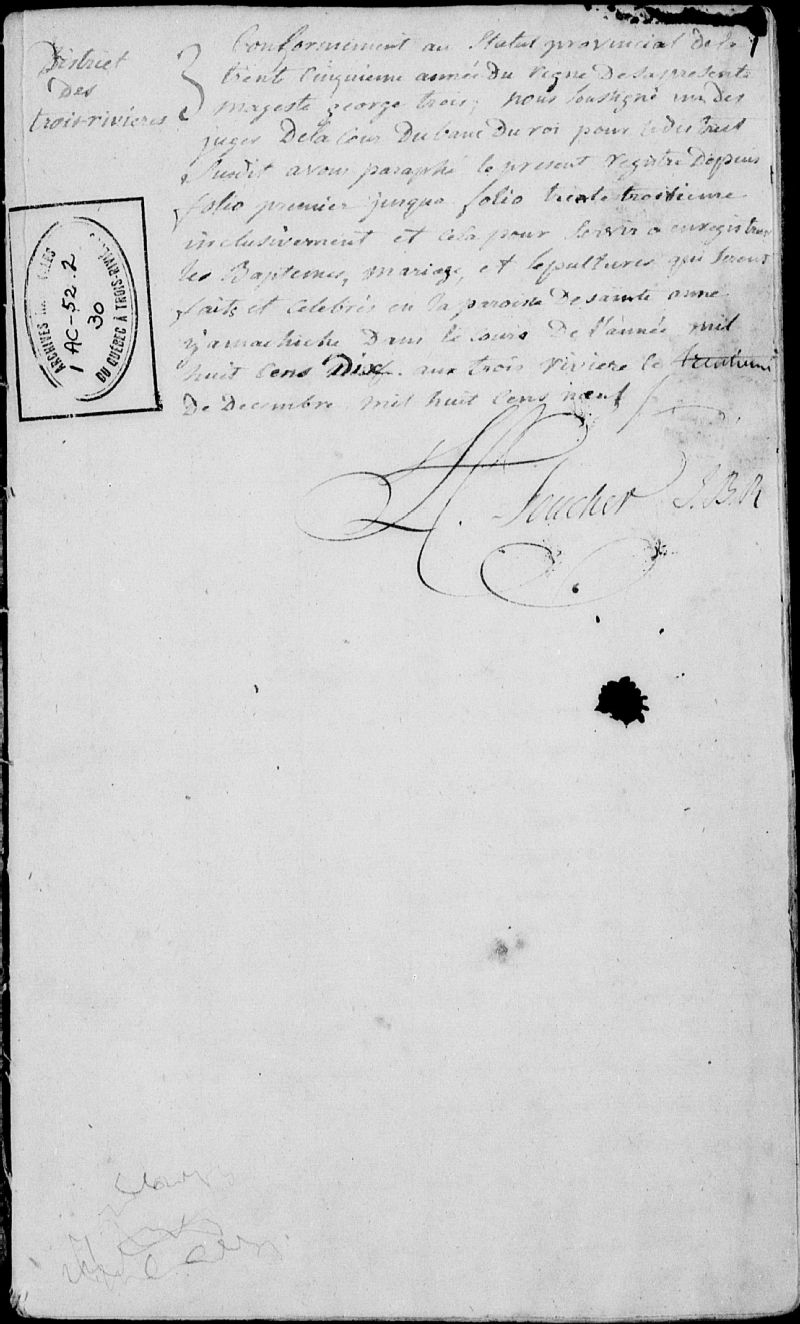 District
Des
trois-rivieres
Conformement au Statut provincial de la
trent cinquieme année Du regne De sa presente
magesté george trois, nous soussigné un des
juges De la Cour Du banc Du roi pour le district
Susdit avons paraphé le present registre Depuis
folio premier jusqua folio trente troisieme
inclusivement et cela pour servir a enregistrer
les Baptemes, mariage, et sepultures qui seront
faits et celebrés en la paroisse De sainte anne
yamachiche Dans le cours De l'année mil
huit Cens Dix. aux trois riviere le
De Decembre mil huit Cens neuf
Foucher J.B.R
1
ARCHIVES
DU QUÉBEC À TROIS-RIVIÈRES
1 AC-52.2
30